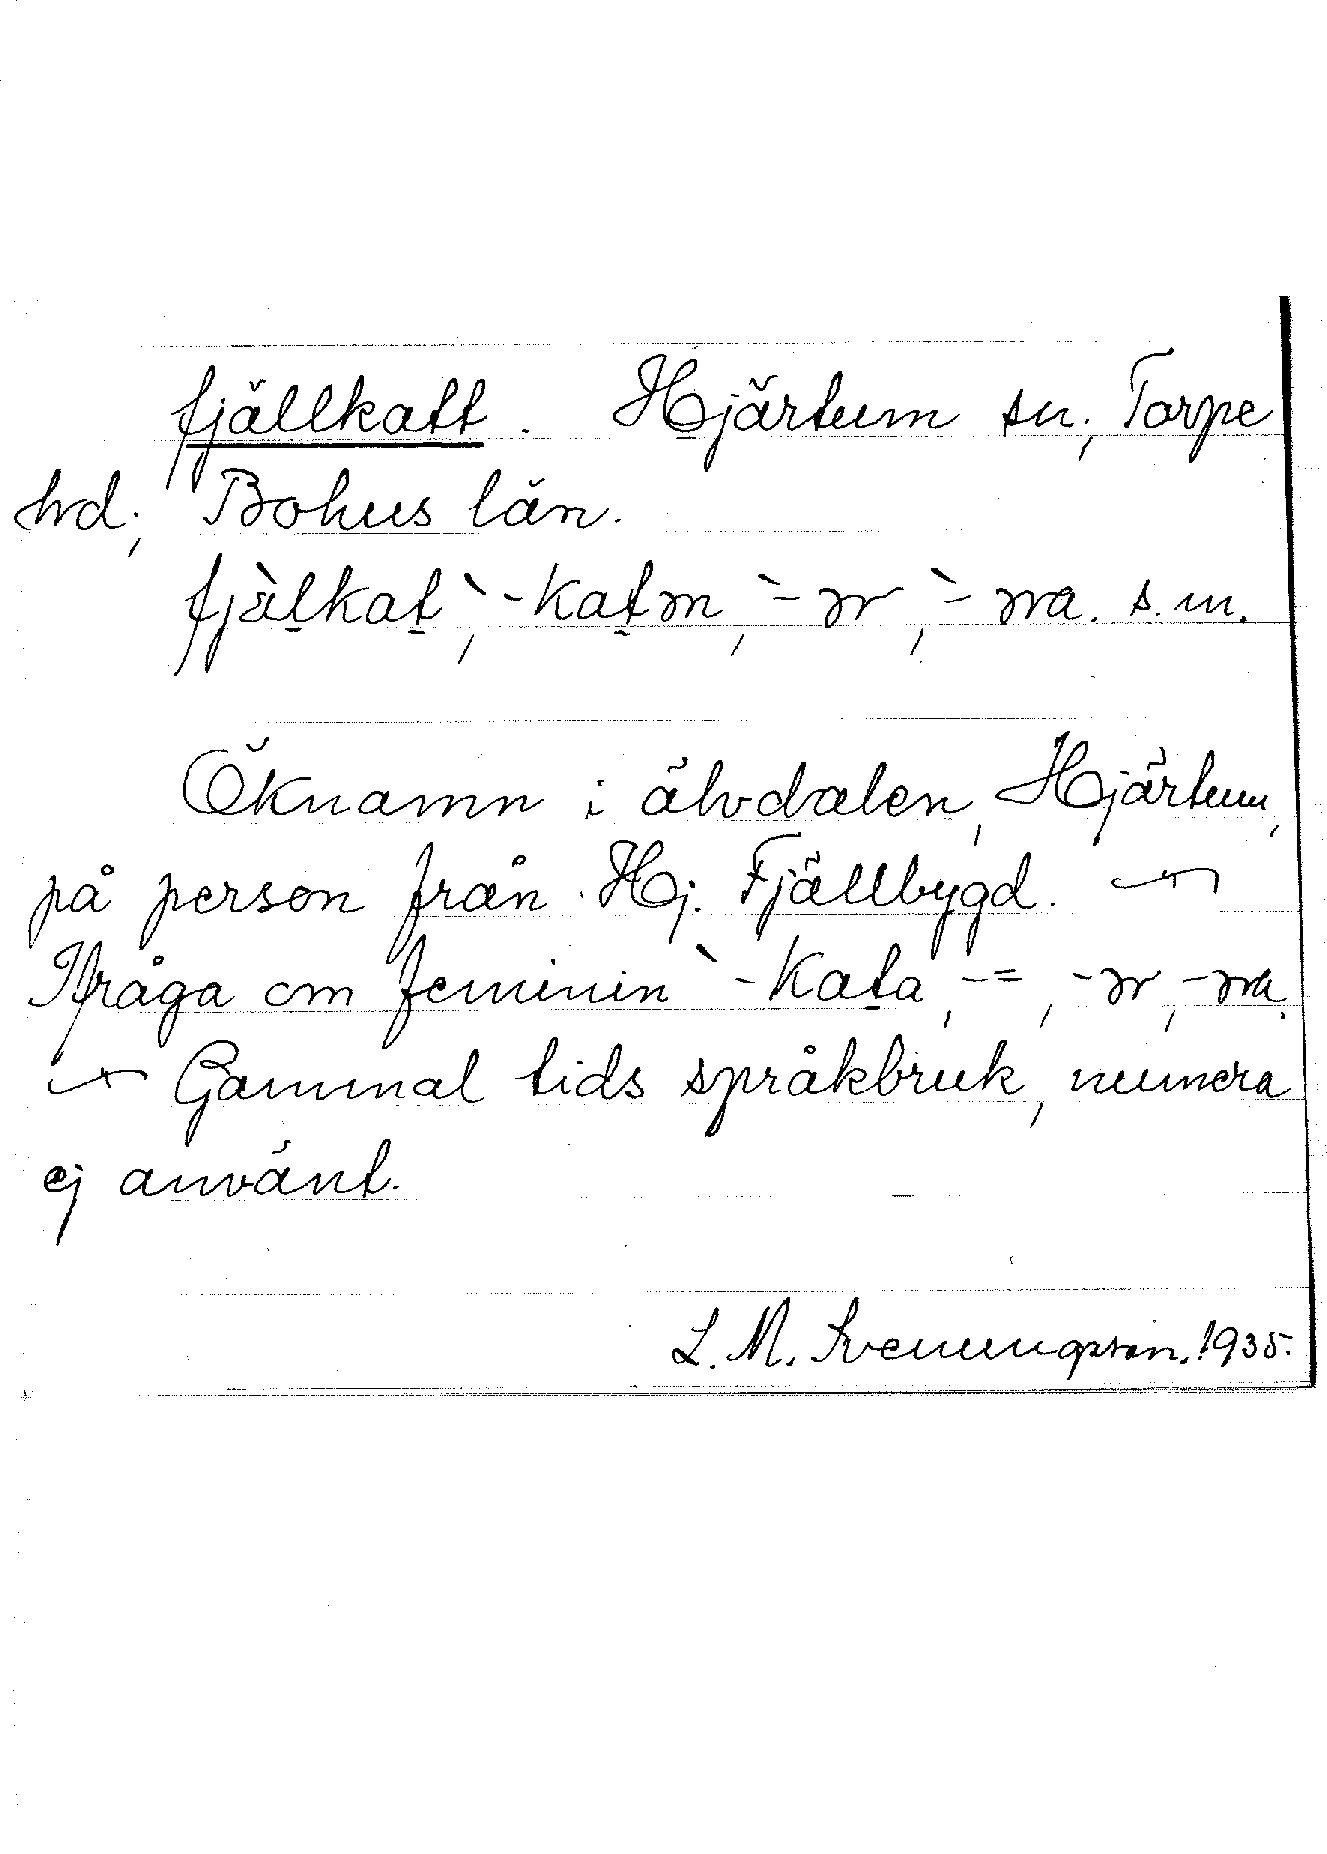 fjällkatt. Hjärtum sn, Torpe
hd, Bohus län.
fjä̀l̠kat̠`, -kat̠ɘn, `-ɘr, `-ɘra. s.m.
Öknamn i älvdalen, Hjärtum,
på person från Hj. Fjällbygd. —
Ifråga om feminin `-kat̠a, -=, -ɘr, -ɘra.
— Gammal tids språkbruk, numera
ej använt.
L. M. Svenungsson. 1935.